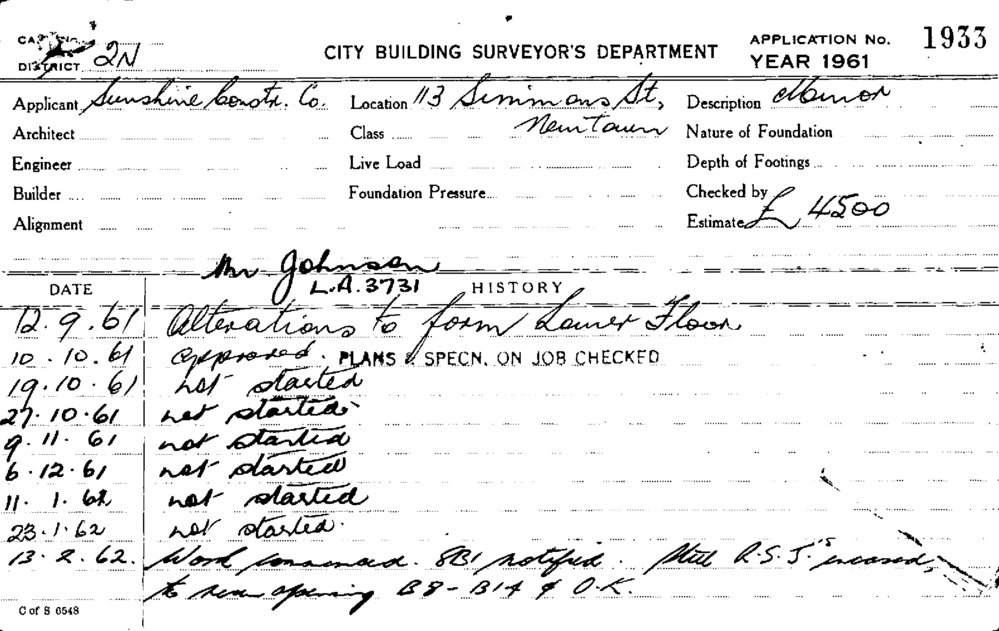 DISTRICT 2N
CITY BUILDING SURVEYOR'S DEPARTMENT
APPLICATION No. 1933
YEAR 1961
Applicant Sunshine Constr. Co. Location 113 Simmons St, Description Manor
Architect Class Newtown Nature of Foundation
Engineer Live Load Depth of Footings
Builder Foundation Pressure Checked by
Alignment Estimate £ 4500
Mr Johnson
L.A.3731
DATE HISTORY
12.9.61 Alterations to form Lower Floor
10.10.61 approved. PLANS & SPECN. ON JOB CHECKED
19.10.61 not started
27.10.61 not started
9.11.61 not started
6.12.61 not started
11.1.62 not started
23.1.62 not started.
13.2.62. Work commenced. SBI notified. Steel R.S.J's encased
to new opening B8-B14 & O.K.
C of S 6548